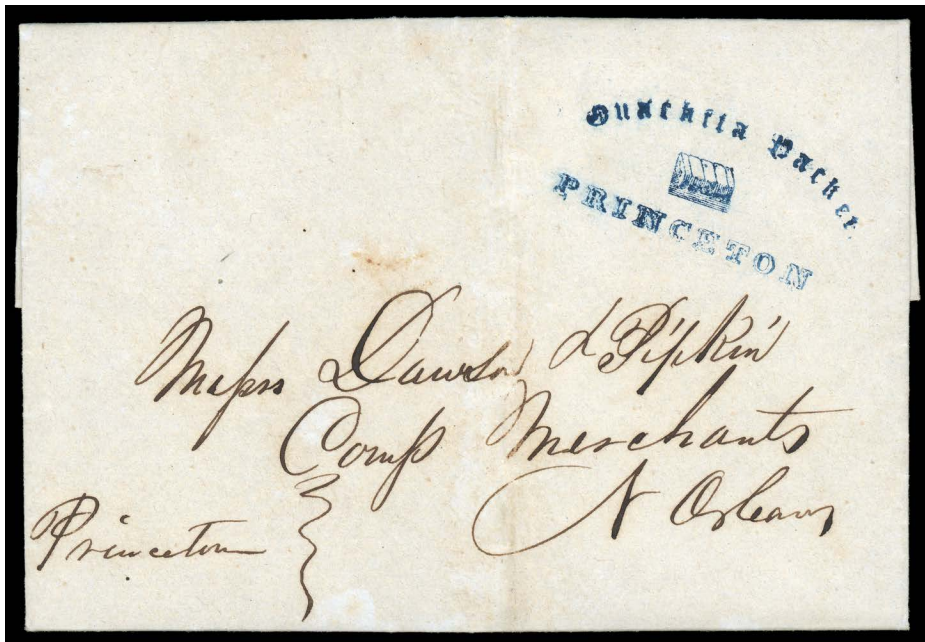 Ouachita Packet.
PRINCETON
Messrs Dawson & Pipkin
Comss Merchants
N Orleans
Princeton